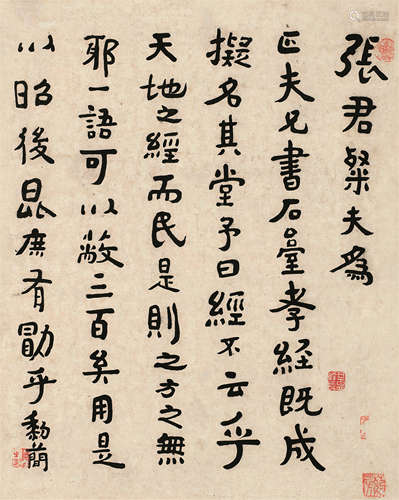 張君粲夫為
正夫兄書石臺孝經既成
擬名其堂予曰經不云乎
天地之經而民是則之方之無
耶一語可以蔽三百矣用是
以昭後昆庶有勖乎黎簡